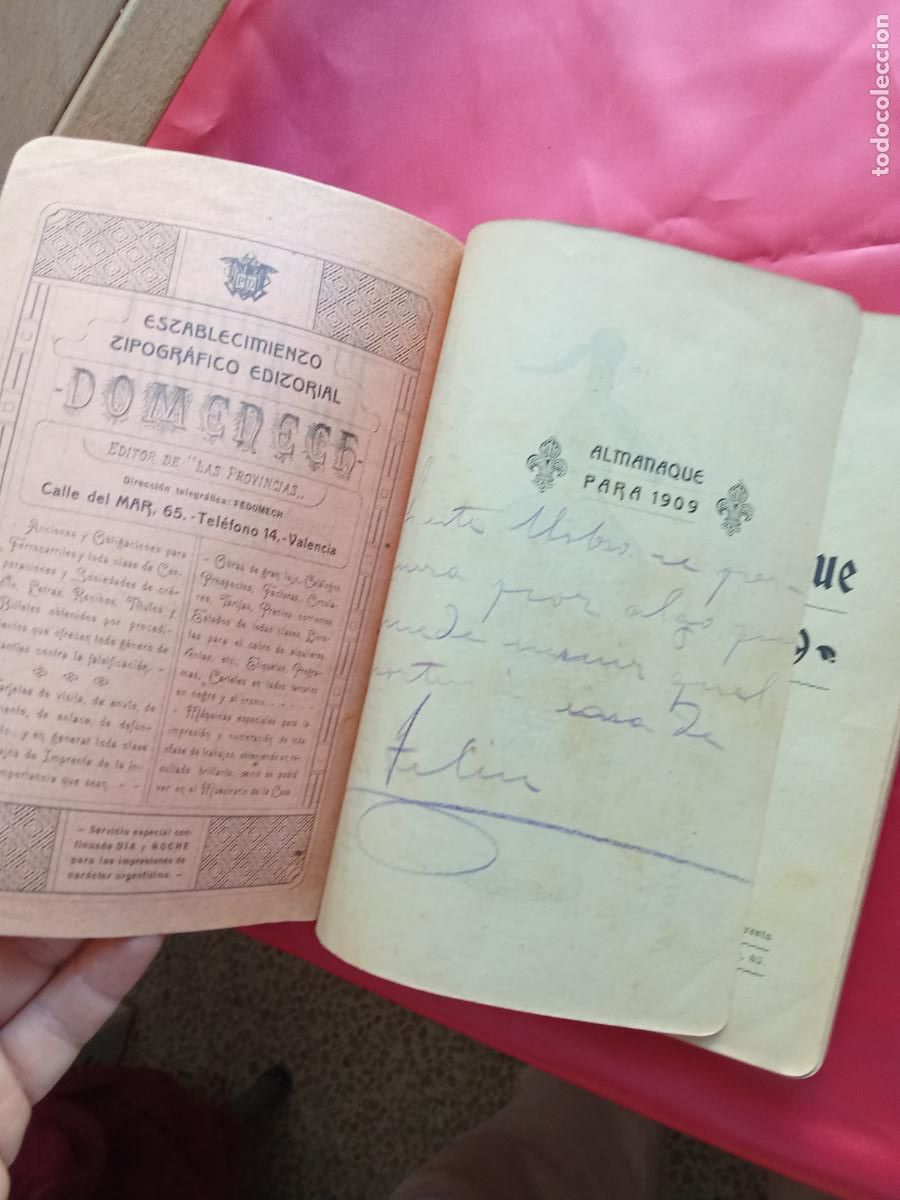 todocoleccion
ESTABLECIMIENTO
TIPOGRÁFICO EDITORIAL
- DOMENECH -
EDITOR DE "LAS PROVINCIAS„
Dirección telegráfica: FEDOMECH
Calle del MAR, 65. - Teléfono 14. - Valencia
Acciones y Obligaciones para
Ferrocarriles y toda clase de Cor-
poraciones y Sociedades de cré-
Letras, Recibos, Títulos y
Billetes obtenidos por procedi-
mientos que ofrecen todo género de
contra la falsificación. -
Tarjetas de visita, de envío, de
de enlace, de defun-
y en general toda clase
de Imprenta de la
importancia que sean. - -
- Obras de gran lujo, Catálogos
Prospectos, Facturas, Circula-
res, Tarifas, Precios corrientes,
Estados de todas clases,
para el cobro de alquileres,
etc., Etiquetas, Progra-
mas, Carteles en todos tamaños
en negro y al cromo. - -
- Máquinas especiales para la
impresión y numeración de toda
clase de trabajos, obteniendo un re-
sultado brillante, según se podrá
ver en el Muestrario de la Casa
- Servicio especial con-
tinuado DIA y NOCHE
para las impresiones de
carácter urgentísimo. -
ALMANAQUE
PARA 1909
se
por algo
casa de
Feliu
ue
9
65.